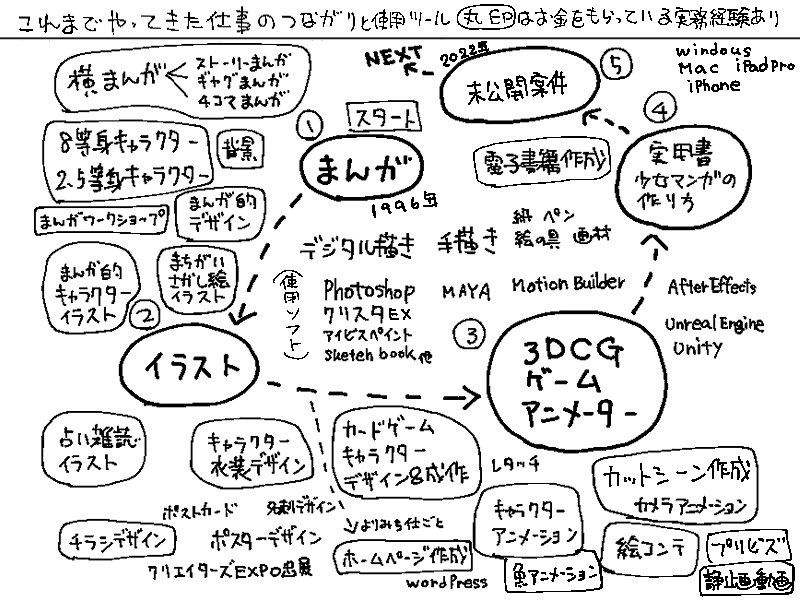 これまでやってきた仕事のつながりと使用ツール 丸印はお金をもらっている実務経験あり
横まんが
ストーリーまんが
ギャグまんが
4コマまんが
8等身キャラクター
2.5等身キャラクター
背景
まんがワークショップ
まんが的
デザイン
まんが的
キャラクター
イラスト
まちがい
さがし絵
イラスト
①
スタート
まんが
1996年
NEXT
2022年
未公開案件
⑤
windous
Mac iPadPro
iPhone
④
電子書籍作成
実用書
少女マンガの
作り方
デジタル描き 手描き
紙 ペン
絵の具 画材
(使用ソフト)
Photoshop
クリスタEX
アイビスペイント
sketch book 他
MAYA
Motion Builder
AfterEffects
Unreal Engine
Unity
②
イラスト
③
3DCG
ゲーム
アニメーター
占い雑誌
イラスト
キャラクター
衣装デザイン
カードゲーム
キャラクター
デザイン&作成
レタッチ
カットシーン作成
カメラアニメーション
ポストカード
名刺デザイン
チラシデザイン
ポスターデザイン
クリエイターズEXPO出展
よりみち仕ごと
ホームページ作成
wordPress
キャラクター
アニメーション
魚アニメーション
絵コンテ
プリビズ
静止画動画